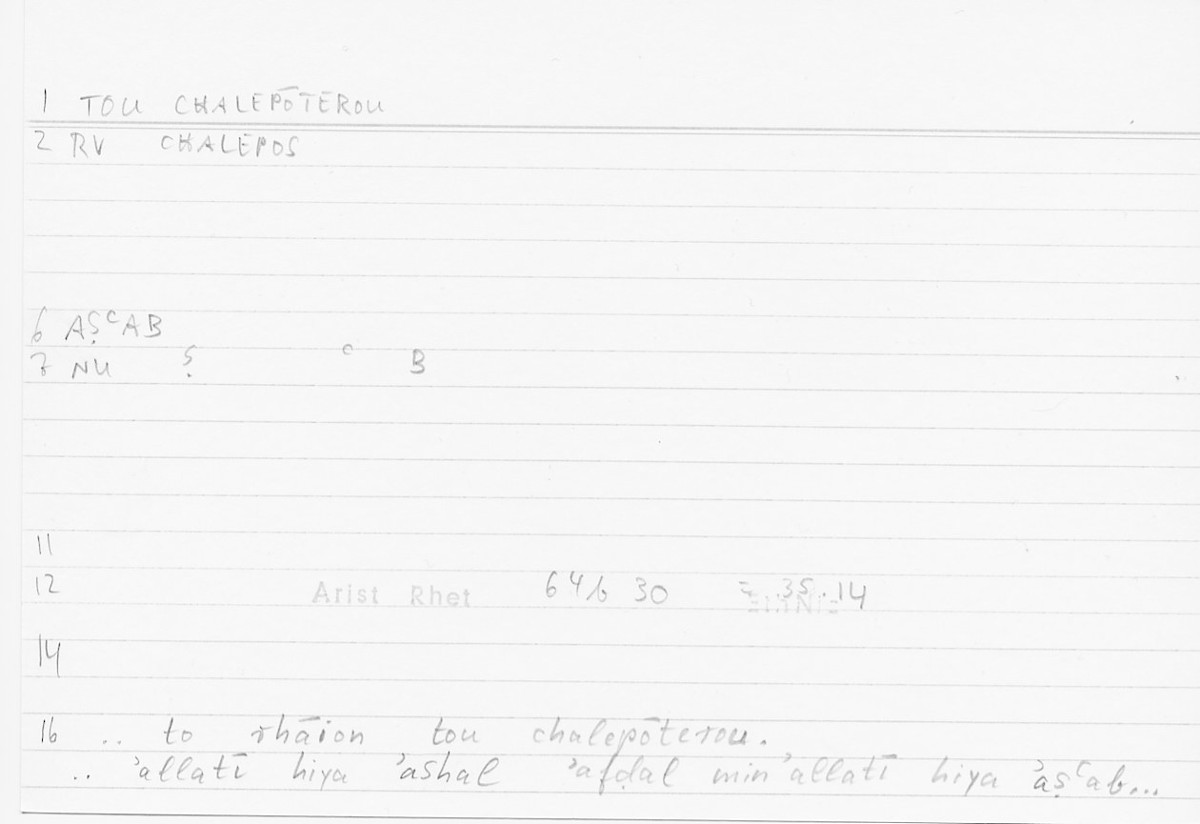 1 TOU CHALEPŌTEROU
2 RV CHALEPOS
6 AṢᶜAB
7 NU Ṣ ᶜ B
11
12 Arist Rhet 64b 30 = 35.14
14
16 .. to rhāion tou chalepōterou.
.. ʾallatī hiya ʾashal ʾafḍal min ʾallatī hiya ʾaṣᶜab...